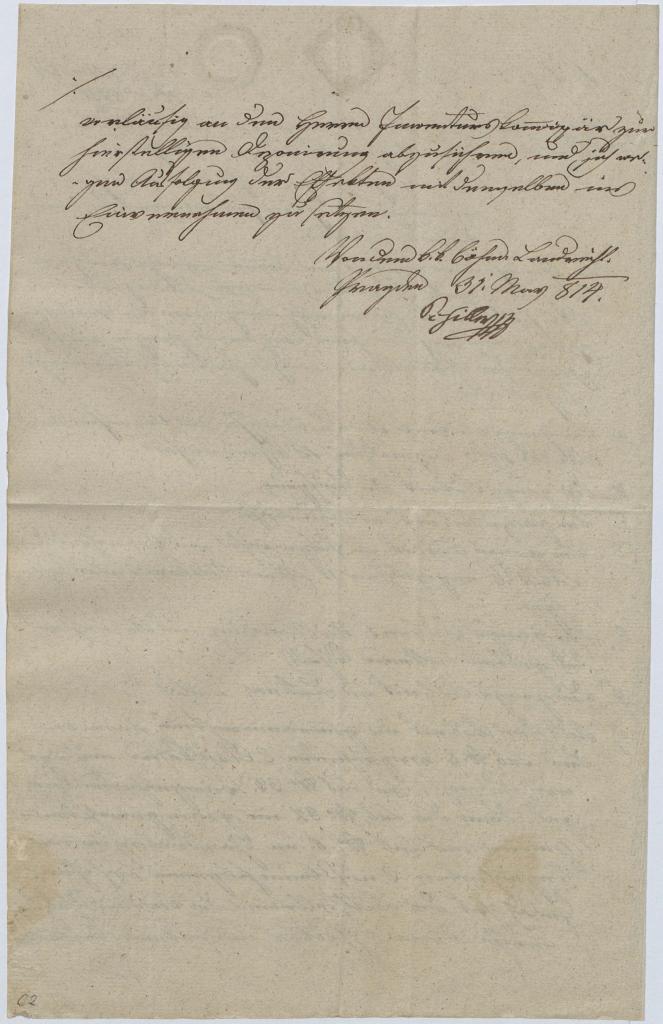 ./.
vorläufig an den Herrn Inventurskommissär zur
hierstelligen Deponirung abzuführen, und sich we-
gen Ausfolgung der Effekten mit demselben ins
Einvernehmen zu setzen.
Von dem k. k. böhm. Landrecht.
Prag den 31. May 814.
02